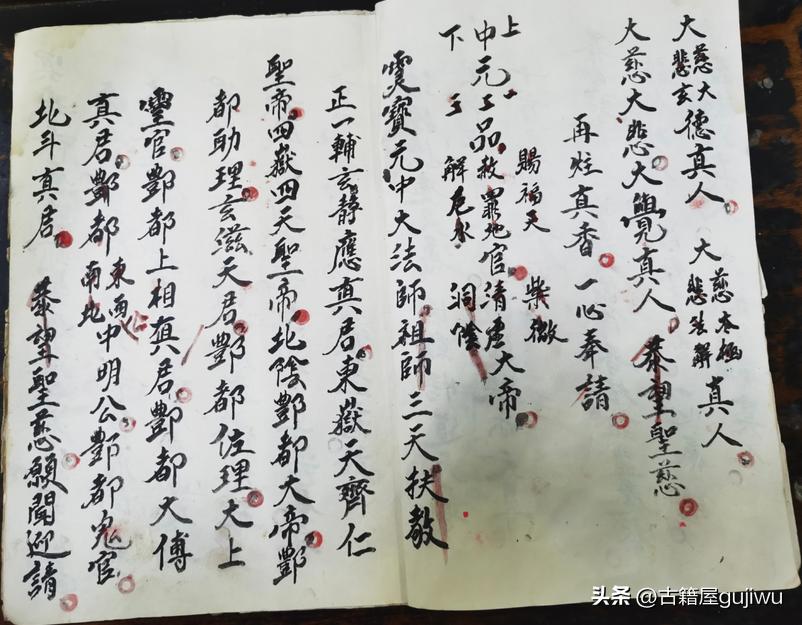 大慈大悲玄德真人 大慈太極悲法解真人
大慈大悲大覺真人 恭望聖慈
再炷真香一心奉請
上中下元一二三品賜福天赦罪地解厄水官紫微清虛洞陰大帝
靈寶元中大法師祖師三天扶教
正一輔玄靜應真君東嶽天齊仁
聖帝四嶽四天聖帝北陰酆都大帝酆
都助理玄滋天君酆都佐理大上
靈官酆都上相真君酆都大傅
真君酆都東西南北中明公酆都鬼官
北斗真君 恭望聖慈願聞迎請
头条 @古籍屋gujiwu